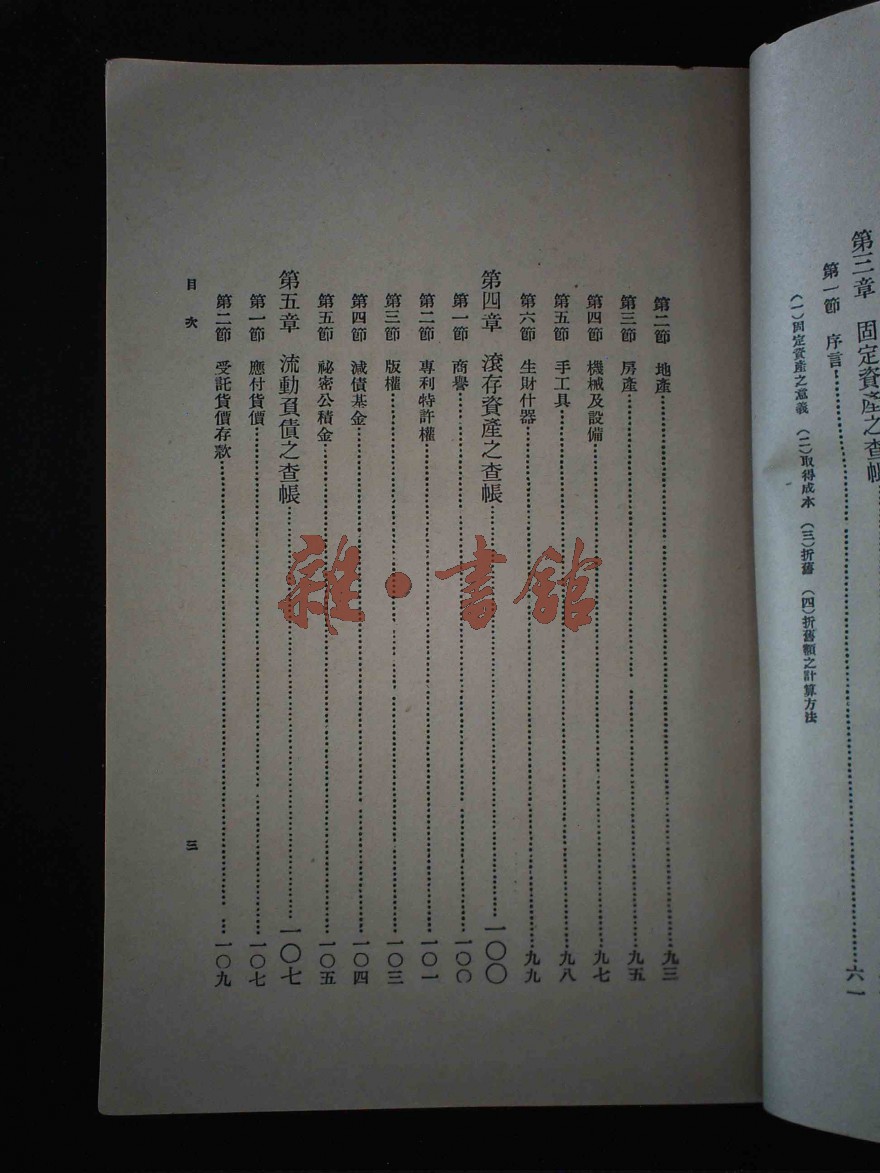 第三章 固定資產之查帳
第一節 序言…………六一
(一)固定資產之意義 (二)取得成本 (三)折舊 (四)折舊額之計算方法
第二節 地產…………九三
第三節 房產…………九五
第四節 機械及設備…………九七
第五節 手工具…………九八
第六節 生財什器…………九九
第四章 滾存資產之查帳…………一〇〇
第一節 商譽…………一〇〇
第二節 專利特許權…………一〇一
第三節 版權…………一〇三
第四節 減債基金…………一〇四
第五節 祕密公積金…………一〇五
第五章 流動負債之查帳…………一〇七
第一節 應付貨價…………一〇七
第二節 受託貨價存款…………一〇九
目次
三
雜·書館